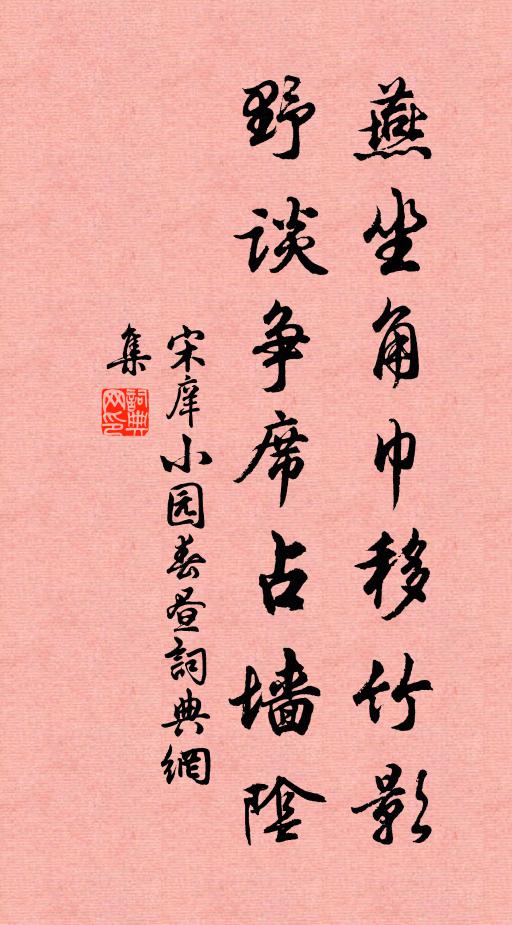 燕坐角巾移竹影
野谈争席占墙陰
宋庠小园春昼詞典網
集
詞典网印